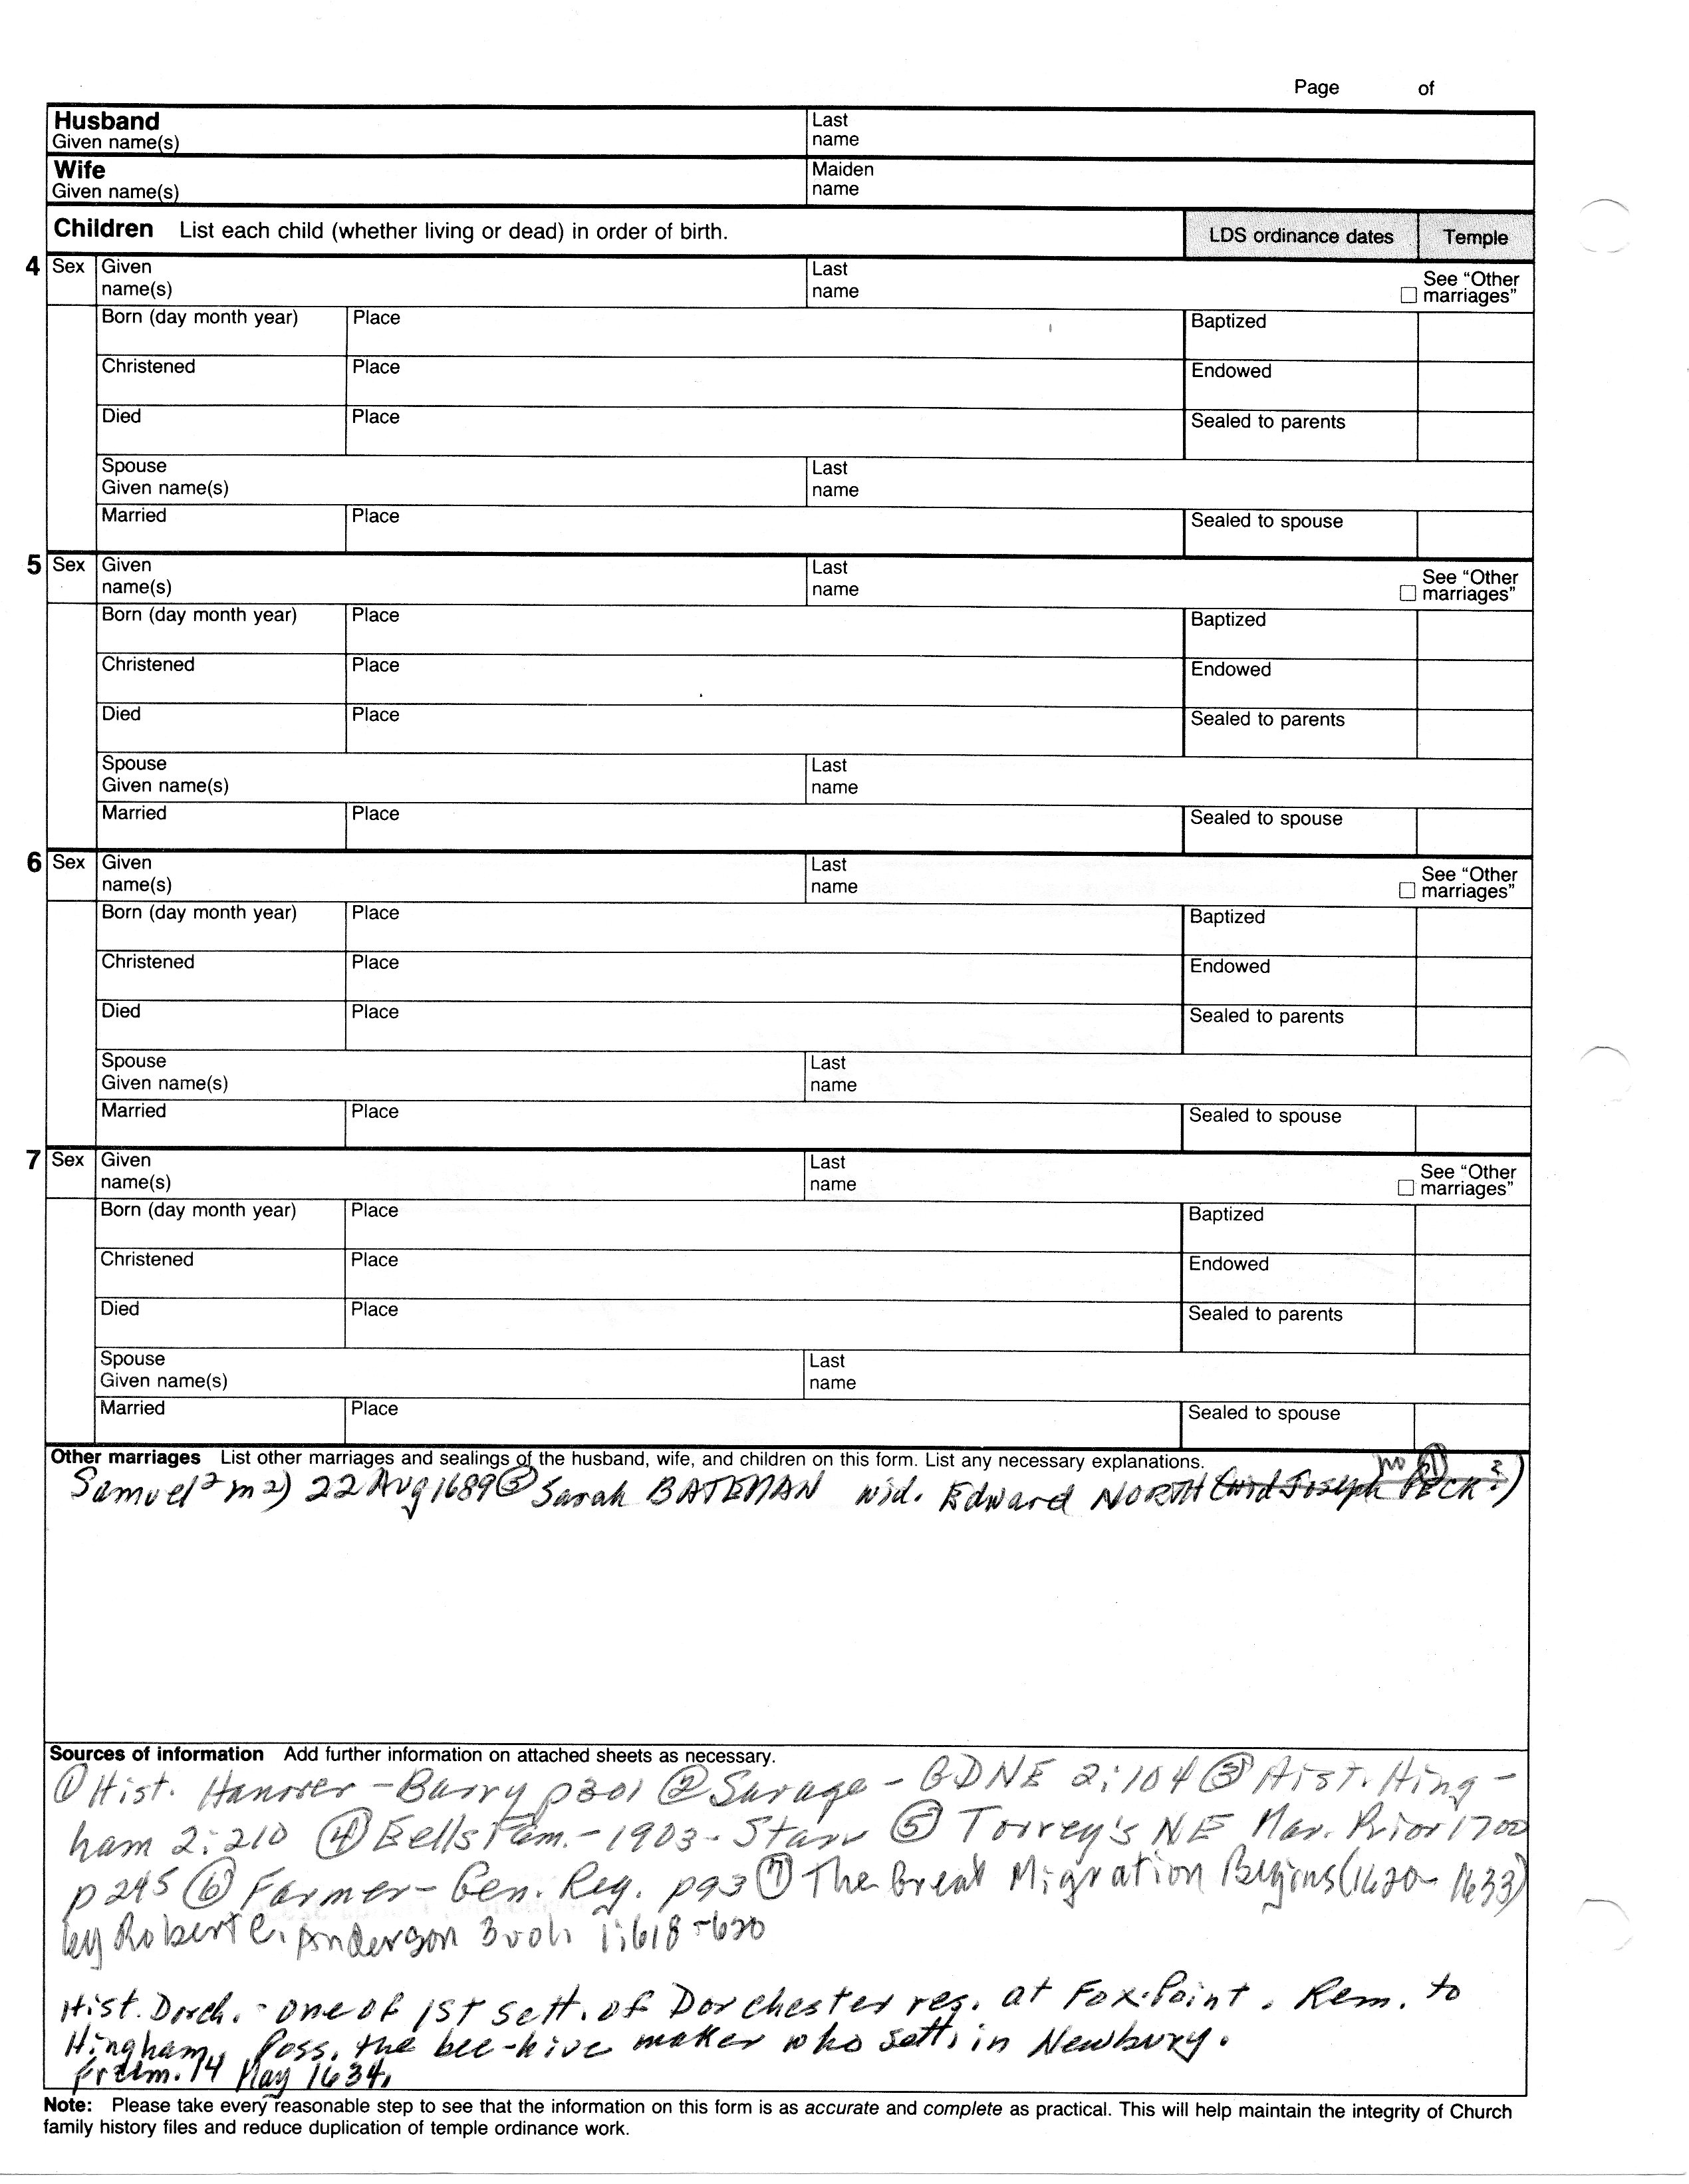 Page of
Husband
Given name(s)
Last
name
Wife
Given name(s)
Maiden
name
Children List each child (whether living or dead) in order of birth.
LDS ordinance dates Temple
4 Sex Given
name(s)
Last
name
See “Other
marriages”
Born (day month year) Place Baptized
Christened Place Endowed
Died Place Sealed to parents
Spouse
Given name(s)
Last
name
Married Place Sealed to spouse
5 Sex Given
name(s)
Last
name
See “Other
marriages”
Born (day month year) Place Baptized
Christened Place Endowed
Died Place Sealed to parents
Spouse
Given name(s)
Last
name
Married Place Sealed to spouse
6 Sex Given
name(s)
Last
name
See “Other
marriages”
Born (day month year) Place Baptized
Christened Place Endowed
Died Place Sealed to parents
Spouse
Given name(s)
Last
name
Married Place Sealed to spouse
7 Sex Given
name(s)
Last
name
See “Other
marriages”
Born (day month year) Place Baptized
Christened Place Endowed
Died Place Sealed to parents
Spouse
Given name(s)
Last
name
Married Place Sealed to spouse
Other marriages List other marriages and sealings of the husband, wife, and children on this form. List any necessary explanations.
no
Samuel² m 2) 22 Aug 1689 ⑤ Sarah BATEMAN wid. Edward NORTH (wid Joseph PECK?)
Sources of information Add further information on attached sheets as necessary.
① Hist. Hanover - Barry p301 ② Savage - GDNE 2:104 ③ Hist. Hing-
ham 2:210 ④ Eells Fam. - 1903 - Starr ⑤ Torrey's NE Mar. Prior 1700
p245 ⑥ Farmer - Gen. Reg. p93 ⑦ The Great Migration Begins (1620-1633)
by Robert C. Anderson 3 vols 1:618-620
Hist. Dorch. - one of 1st sett. of Dorchester res. at Fox Point. Rem. to
Hingham. Poss. the bee-hive maker who sett. in Newbury.
frdm. 14 May 1634.
Note: Please take every reasonable step to see that the information on this form is as accurate and complete as practical. This will help maintain the integrity of Church
family history files and reduce duplication of temple ordinance work.